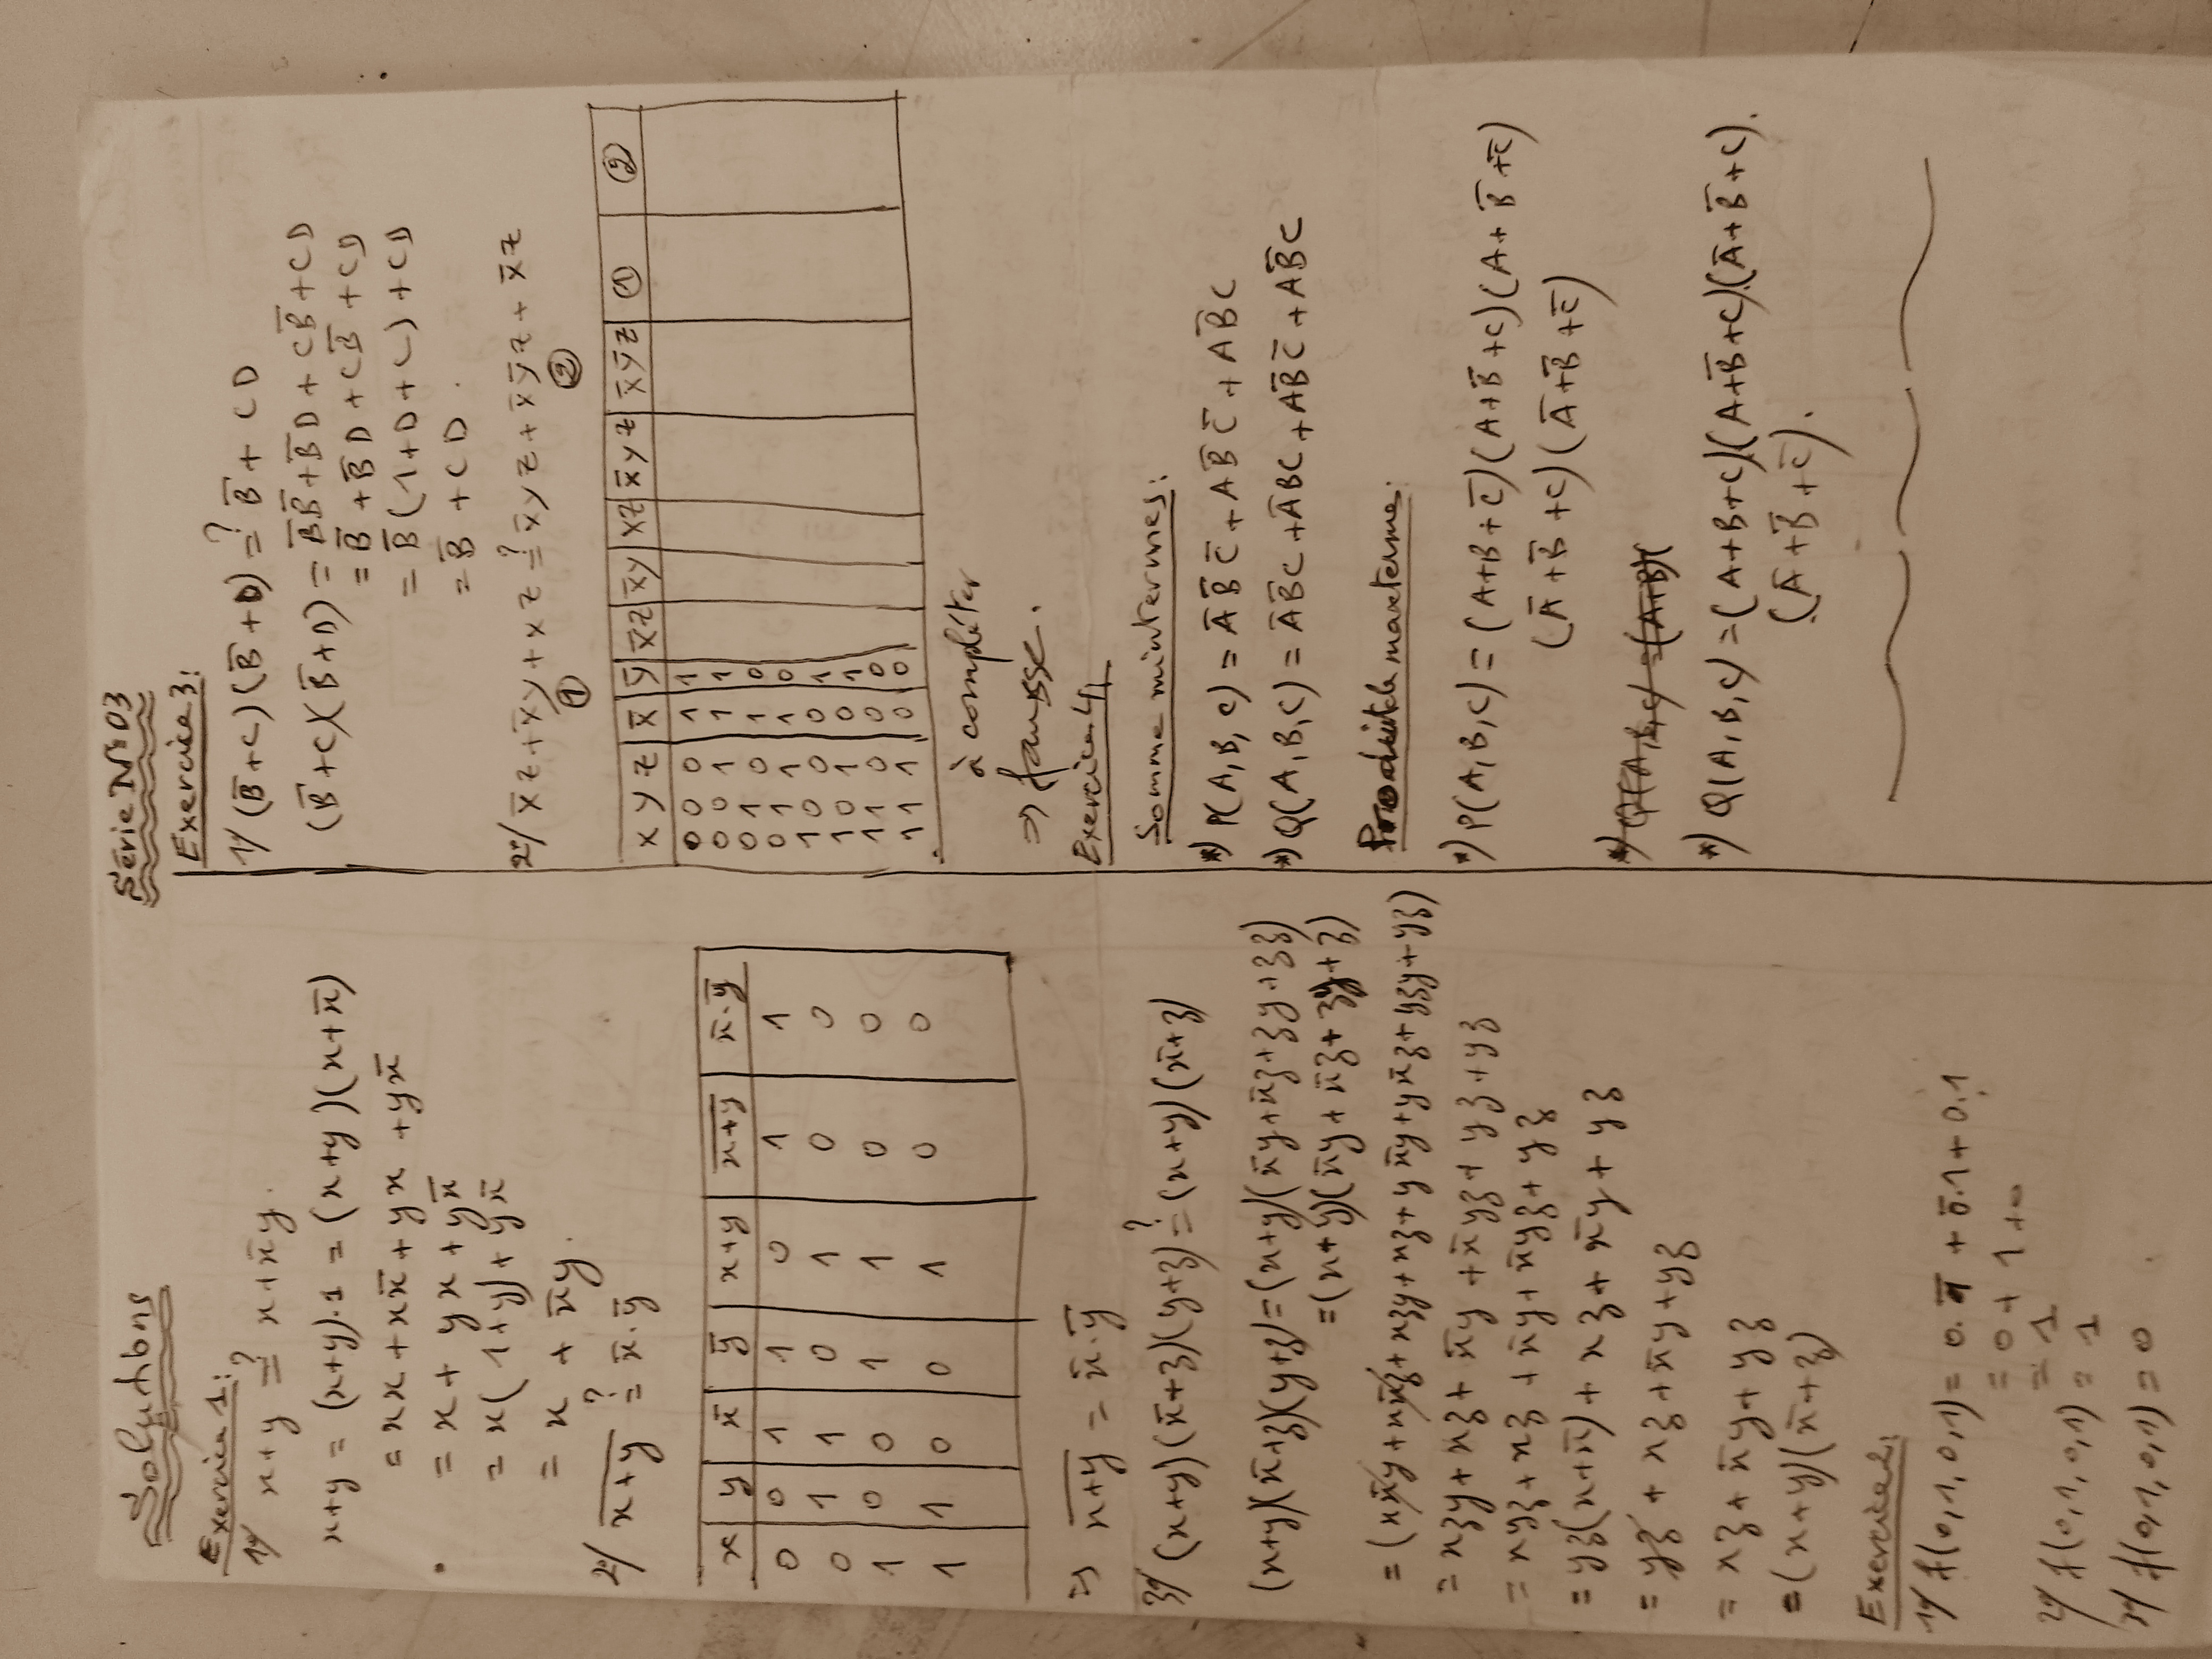 Solutions
Série N°03
Exercice 1:
1°/ x+y =? x+x̄y.
x+y = (x+y).1 = (x+y)(x+x̄)
= xx + xx̄ + yx + yx̄
= x + yx + yx̄
= x(1+y) + yx̄
= x + x̄y.
2°/ \overline{x+y} =? x̄.ȳ
x | y | x̄ | ȳ | x+y | \overline{x+y} | x̄.ȳ
0 | 0 | 1 | 1 | 0 | 1 | 1
0 | 1 | 1 | 0 | 1 | 0 | 0
1 | 0 | 0 | 1 | 1 | 0 | 0
1 | 1 | 0 | 0 | 1 | 0 | 0
⇒ \overline{x+y} = x̄.ȳ
3°/ (x+y)(x̄+z)(y+z) =? (x+y)(x̄+z)
(x+y)(x̄+z)(y+z) = (x+y)(x̄y+x̄z+zy+zz)
= (x+y)(x̄y+x̄z+zy+z)
= (xx̄y+xx̄z+xzy+xz+yx̄y+yx̄z+yzy+yz)
= xzy+xz+x̄y+x̄yz+yz+yz
= xyz+xz+x̄y+x̄yz+yz
= yz(x+x̄)+xz+x̄y+yz
= yz+xz+x̄y+yz
= xz+x̄y+yz
= (x+y)(x̄+z)
Exercice 2:
1°/ f(0,1,0,1) = 0.1̄ + 0̄.1 + 0.1
= 0 + 1 + 0
= 1
2°/ f(0,1,0,1) = 1
3°/ f(0,1,0,1) = 0
Exercice 3:
1°/ (B̄+C)(B̄+D) =? B̄+CD
(B̄+C)(B̄+D) = B̄B̄+B̄D+CB̄+CD
= B̄+B̄D+CB̄+CD
= B̄(1+D+C)+CD
= B̄+CD.
2°/ x̄z+x̄y+xz =? x̄yz+x̄ȳz+x̄z
① ②
x y z | x̄ | ȳ | x̄z | x̄y | xz | x̄yz | x̄ȳz | ① | ②
0 0 0 | 1 | 1
0 0 1 | 1 | 1
0 1 0 | 1 | 0
0 1 1 | 1 | 0
1 0 0 | 0 | 1
1 0 1 | 0 | 1
1 1 0 | 0 | 0
1 1 1 | 0 | 0
à compléter
⇒ fausse.
Exercice 4:
Somme mintermes:
*) P(A,B,C) = ĀB̄C̄+AB̄C̄+AB̄C
*) Q(A,B,C) = ĀB̄C+ĀBC+AB̄C̄+AB̄C
Produit de maxterme:
*) P(A,B,C) = (A+B+C̄)(A+B̄+C)(A+B̄+C̄)
(Ā+B̄+C)(Ā+B̄+C̄)
*) Q(A,B,C) = (A+B)(
*) Q(A,B,C) = (A+B+C)(A+B̄+C)(Ā+B̄+C).
(Ā+B̄+C̄).